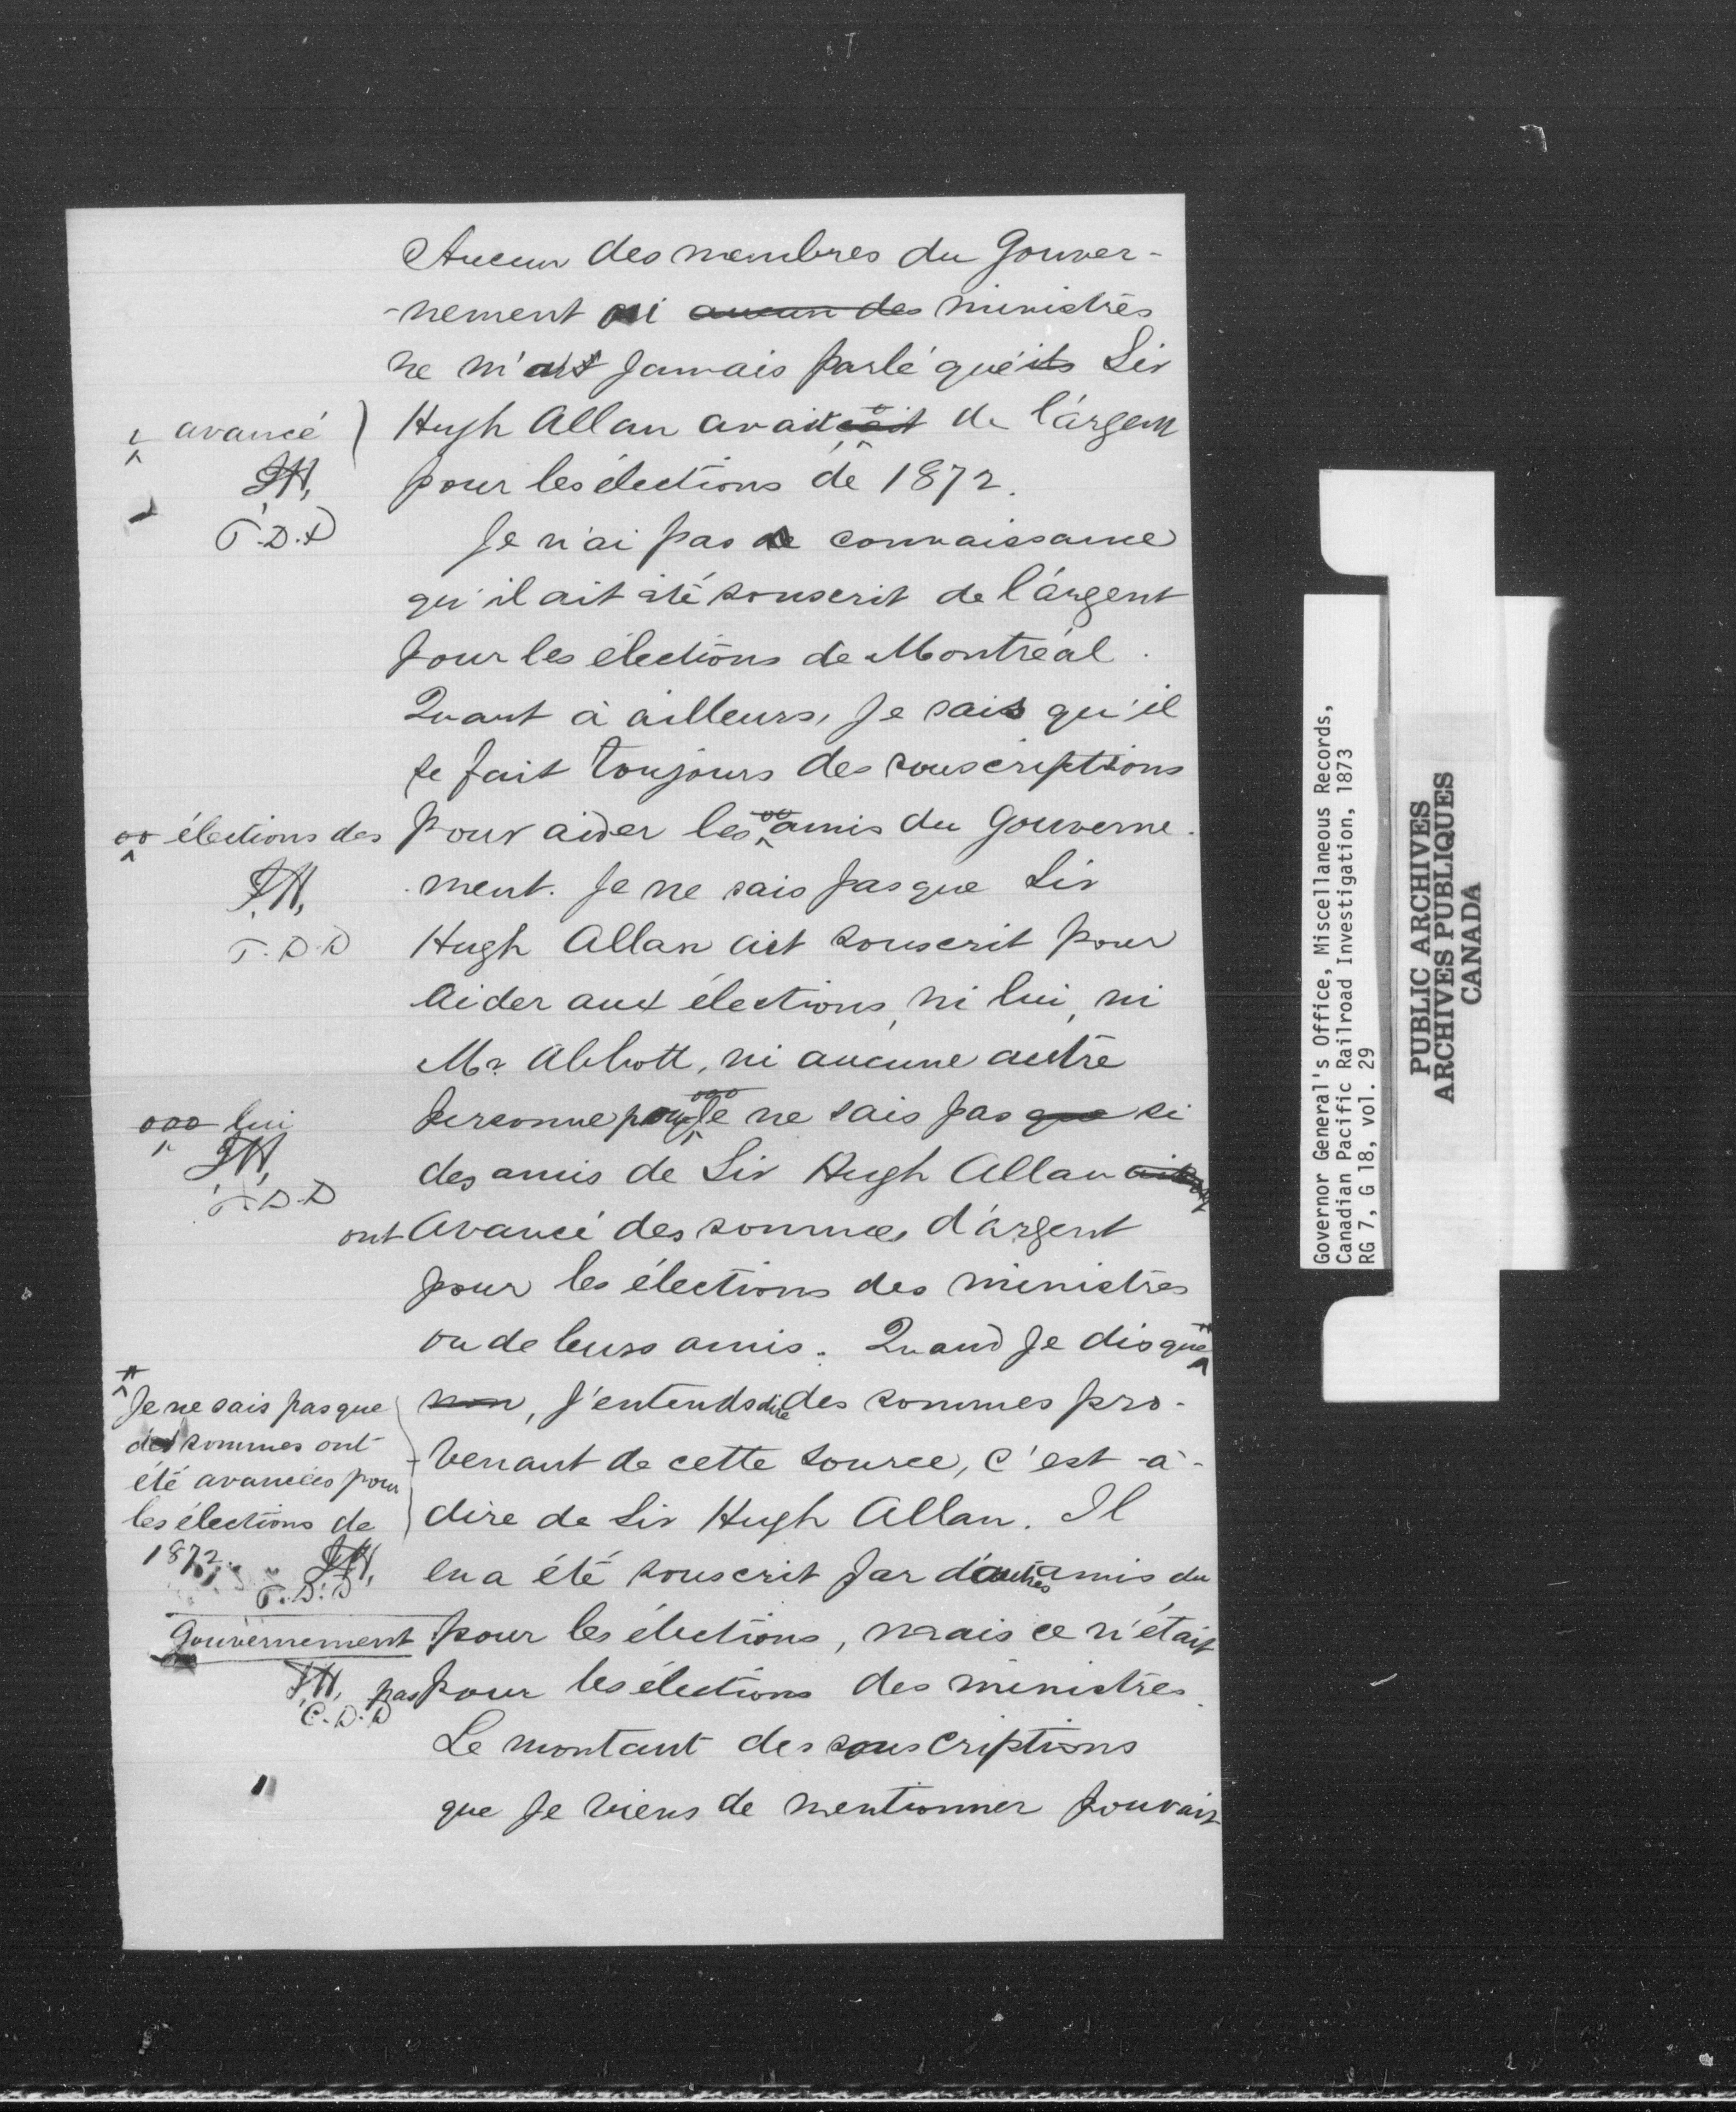 Aucun des membres du Gouver-
-nement ni aucun des ministres
ne m'a jamais parlé que Sir
avancé
Hugh Allan avait de l'argent
J.H.
pour les élections de 1872.
T.D.D
Je n'ai pas connaissance
qu'il ait été souscrit de l'argent
pour les élections de Montréal.
Quant à ailleurs, je sais qu'il
se fait toujours des souscriptions
oo élections des
pour aider les oo amis du Gouverne-
J.H.
-ment. Je ne sais pas que Sir
T.D.D
Hugh Allan ait souscrit pour
aider aux élections, ni lui, ni
Mr. Abbott, ni aucune autre
ooo lui
personne pour ooo Je ne sais pas que si
J.H.
des amis de Sir Hugh Allan
T.D.D
ont avancé des sommes d'argent
pour les élections des ministres
ou de leurs amis. Quand je dis que
Je ne sais pas que
des sommes ont
été avancées pour
les élections de
1872.
J.H.
T.D.D
non, j'entends dire des sommes pro-
-venant de cette source, c'est-à-
dire de Sir Hugh Allan. Il
en a été souscrit par d'autres amis du
Gouvernement pour les élections, mais ce n'était
J.H.
C.D.D
pas pour les élections des ministres.
Le montant des souscriptions
que je viens de mentionner pouvait
Governor General's Office, Miscellaneous Records,
Canadian Pacific Railroad Investigation, 1873
RG 7, G 18, vol. 29
PUBLIC ARCHIVES
ARCHIVES PUBLIQUES
CANADA